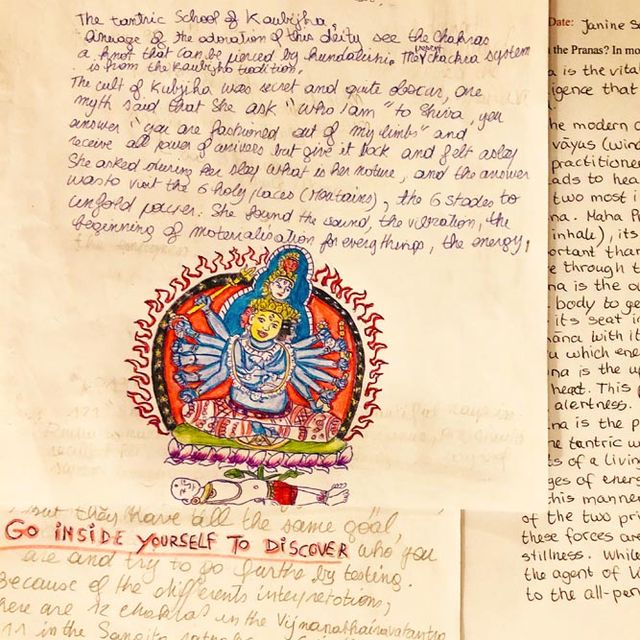 The tantric School of Kaubijha,
of the adoration of this deity see the chakras
a knot that can be pierced by kundalini. The present chackra system
is from the Kaubijha tradition.
The cult of Kubjiha was secret and quite obscur, one
myth said that she ask "who I am" to Shiva, you
answer "you are fashioned out of my limbs" and
receive all power of univers but give it back and felt aslep
She asked during her slep what is her nature, and the answer
was to visit the 6 holy places (Mountains), the 6 stades to
unfold power. She found the sound, the vibration, the
beginning of materialisation for everythings, the energy,
but they have all the same goal,
GO INSIDE YOURSELF TO DISCOVER who you
are and try to go furthe by testing.
Because of the differents interpretations,
there are 12 chakras in the Vijnanabhairavatantra
11 in the
Date: Janine
the Pranas? In mo
is the vital
igence that
he modern
vāyus (wind
practitione
ads to hea
two most i
na. Maha P
inhale), its
ortant than
e through t
na is the ou
body to ge
its seat i
ana with it
u which ene
na is the up
heart. This p
alertness.
na is the p
he tantric w
s of a living
ges of energ
his manner
of the two pri
these forces are
stillness. While
the agent of li
to the all-per